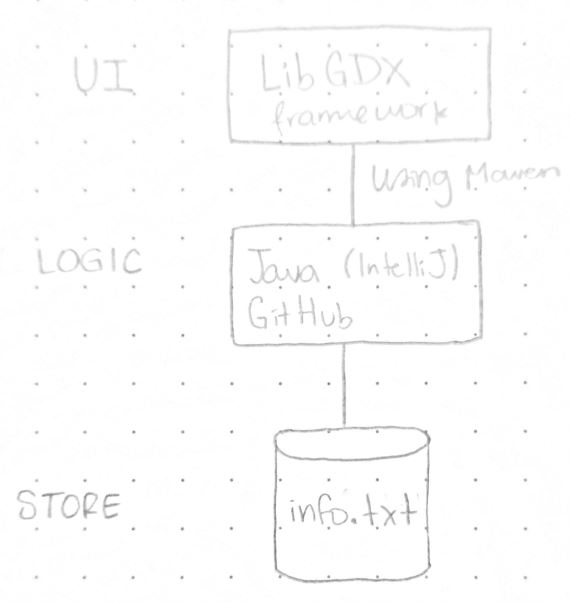 UI
LibGDX
framework
Using Maven
LOGIC
Java (IntelliJ)
GitHub
STORE
info.txt